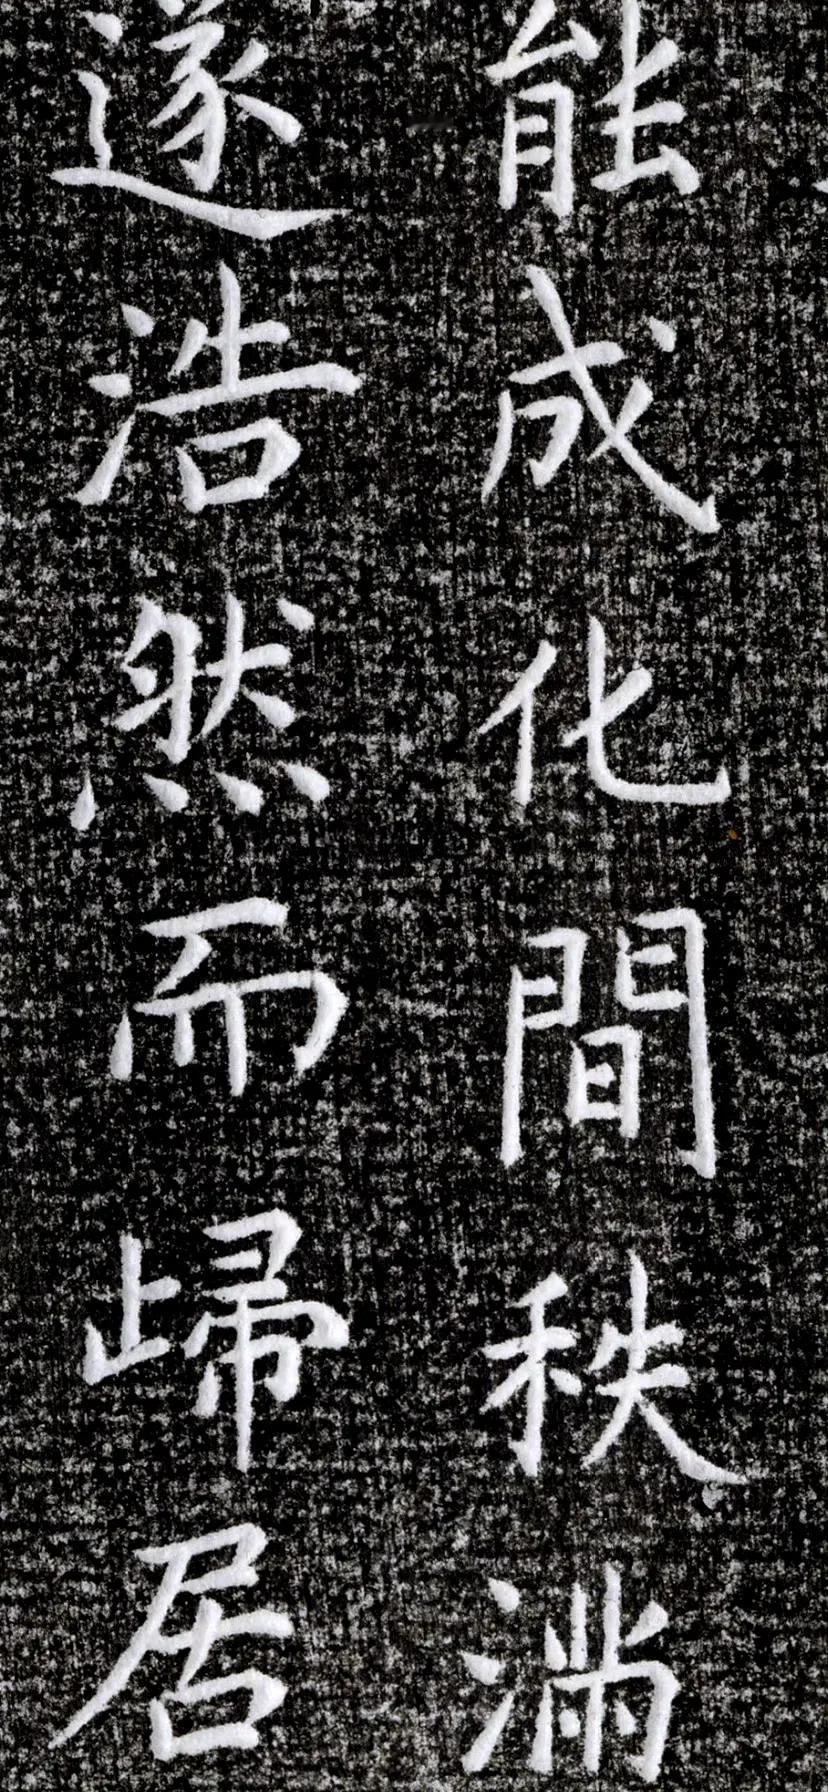 能成化間秩滿
遂浩然而歸居